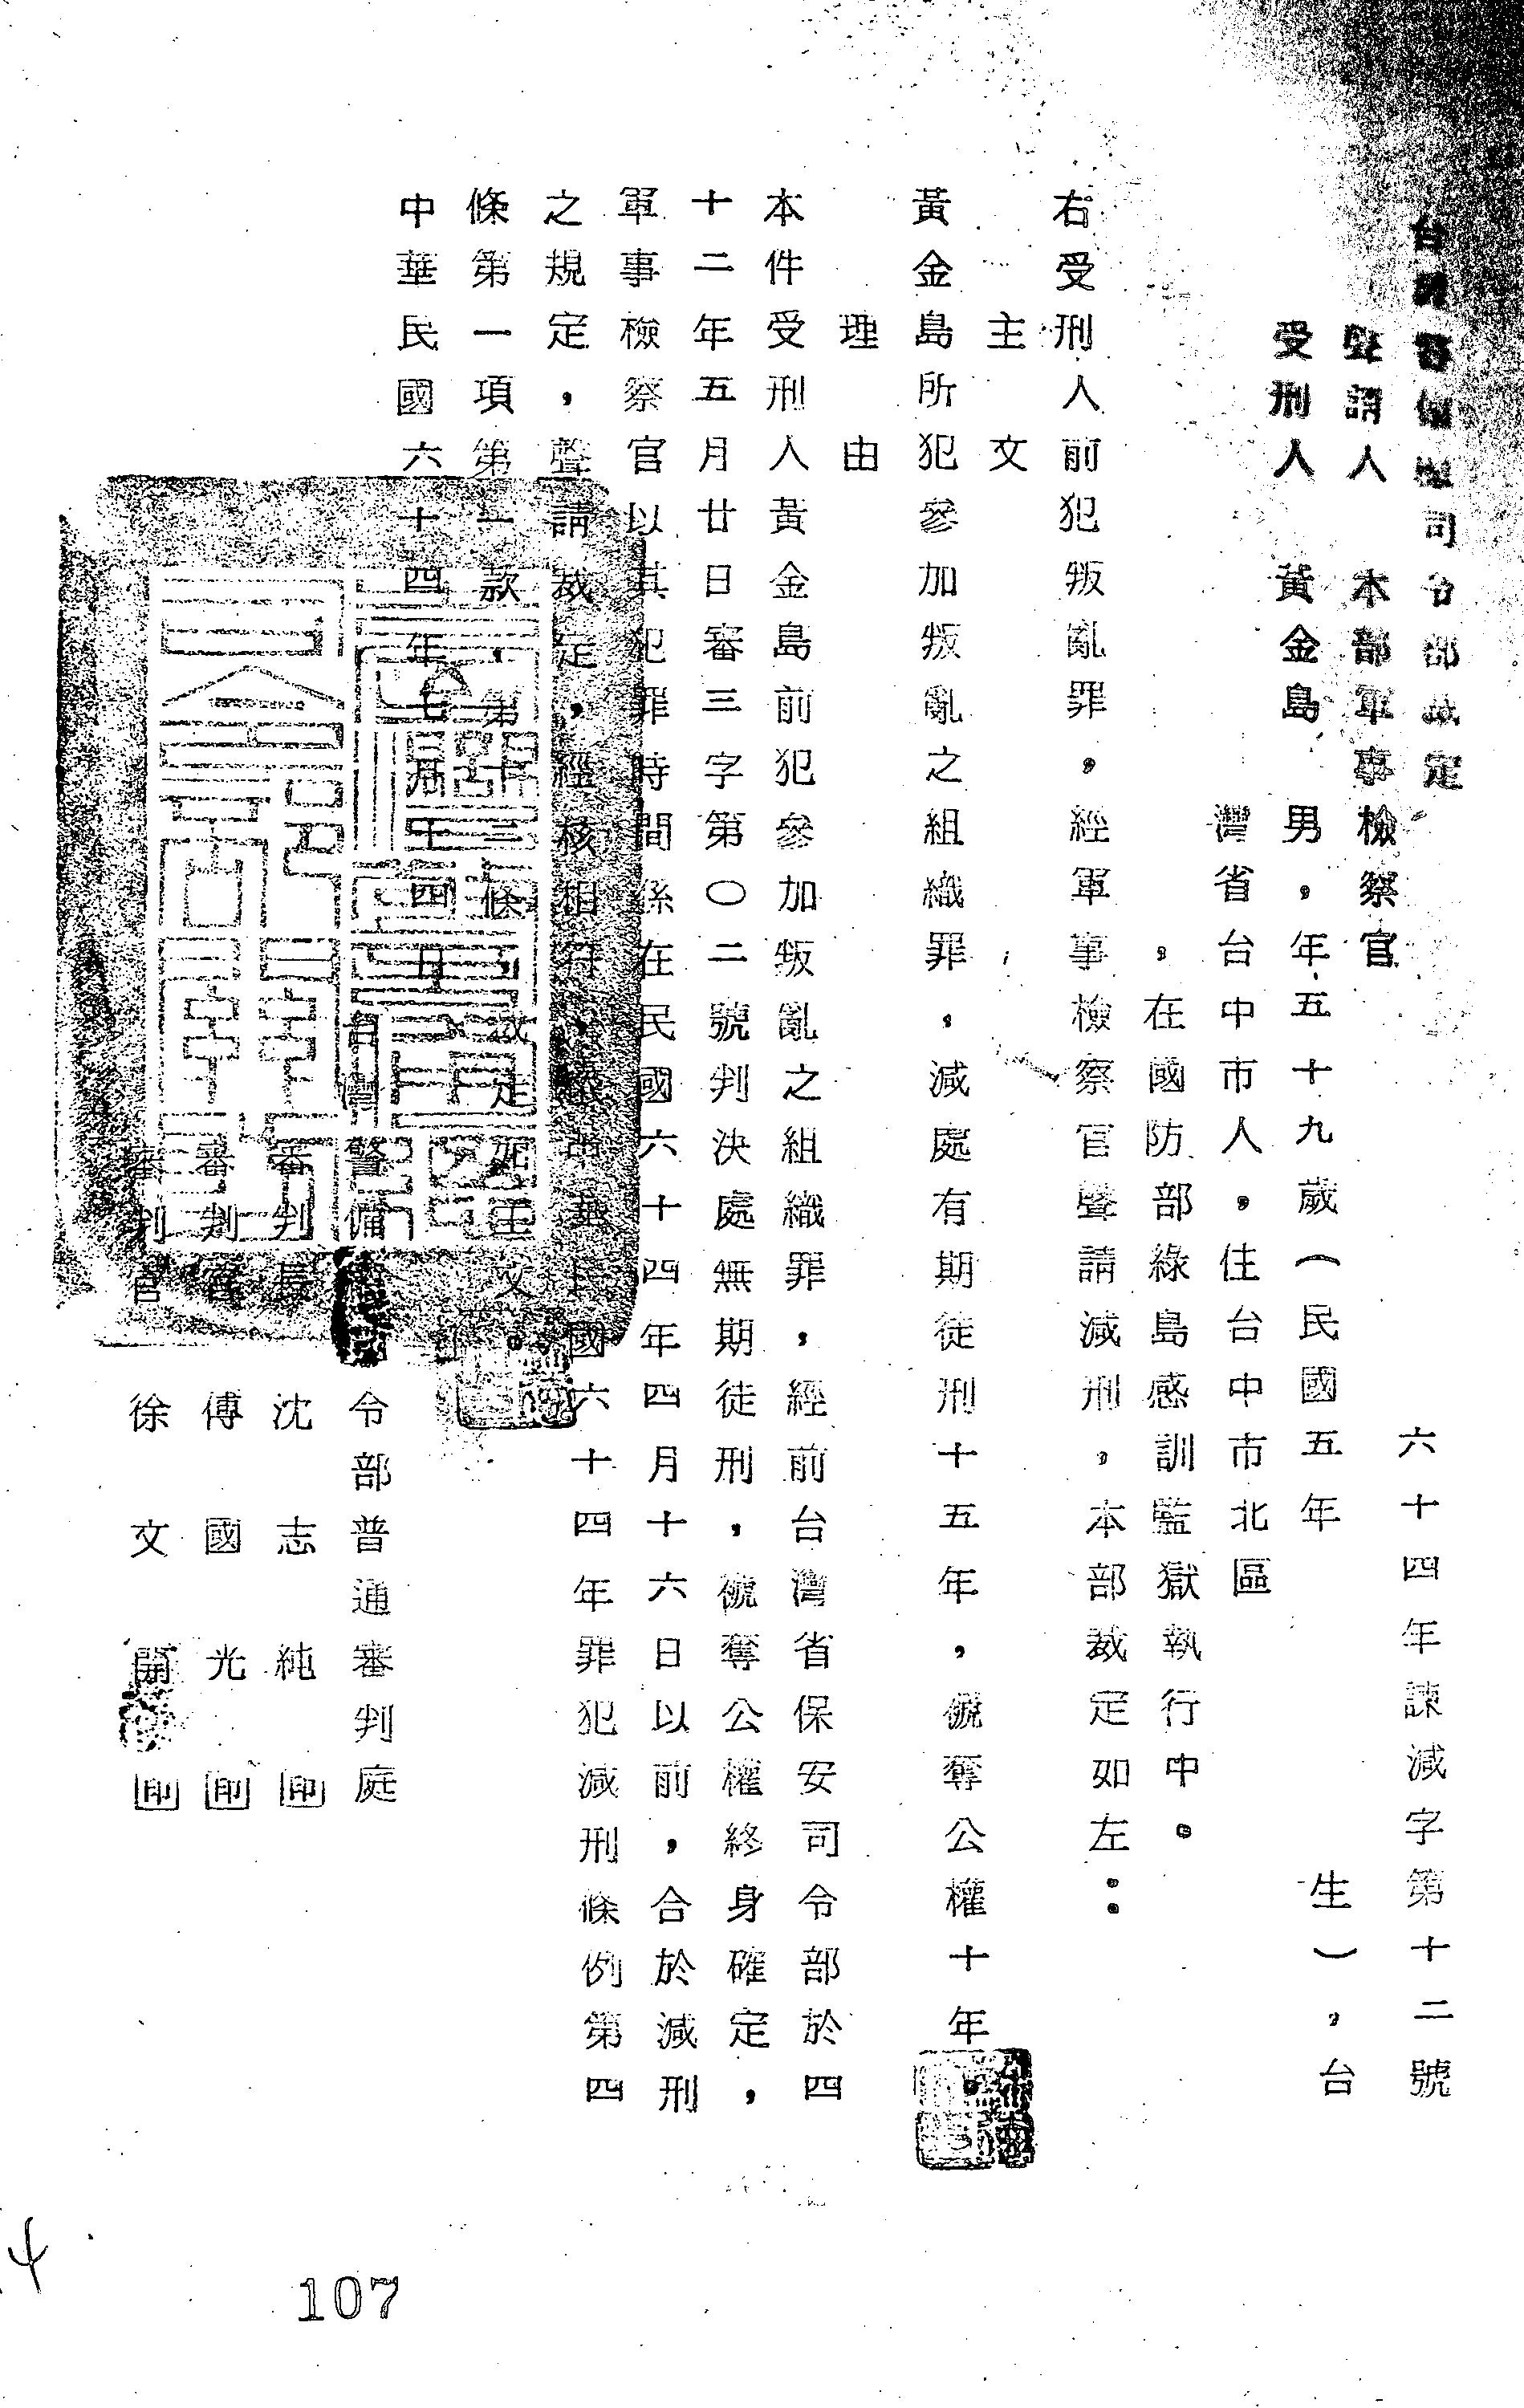 台灣警備總司令部裁定　六十四年諫減字第十二號
聲請人　本部軍事檢察官
受刑人　黃金島　男，年五十九歲（民國五年　生），台
灣省台中市人，住台中市北區
。在國防部綠島感訓監獄執行中。
右受刑人前犯叛亂罪，經軍事檢察官聲請減刑，本部裁定如左：
主文
黃金島所犯參加叛亂之組織罪，減處有期徒刑十五年，褫奪公權十年。
理由
本件受刑人黃金島前犯參加叛亂之組織罪，經前台灣省保安司令部於四
十二年五月廿日審三字第〇二號判決處無期徒刑，褫奪公權終身確定，
軍事檢察官以其犯罪時間係在民國六十四年四月十六日以前，合於減刑
之規定，聲請裁定，經核相符，中華民國六十四年罪犯減刑條例第四
條第一項第一款，第十三條，裁定如主文。
中華民國六十四年七月十四日
台灣警備令部普通審判庭
審判長　沈志純　印
審判官　傅國光　印
審判官　徐文開　印
107